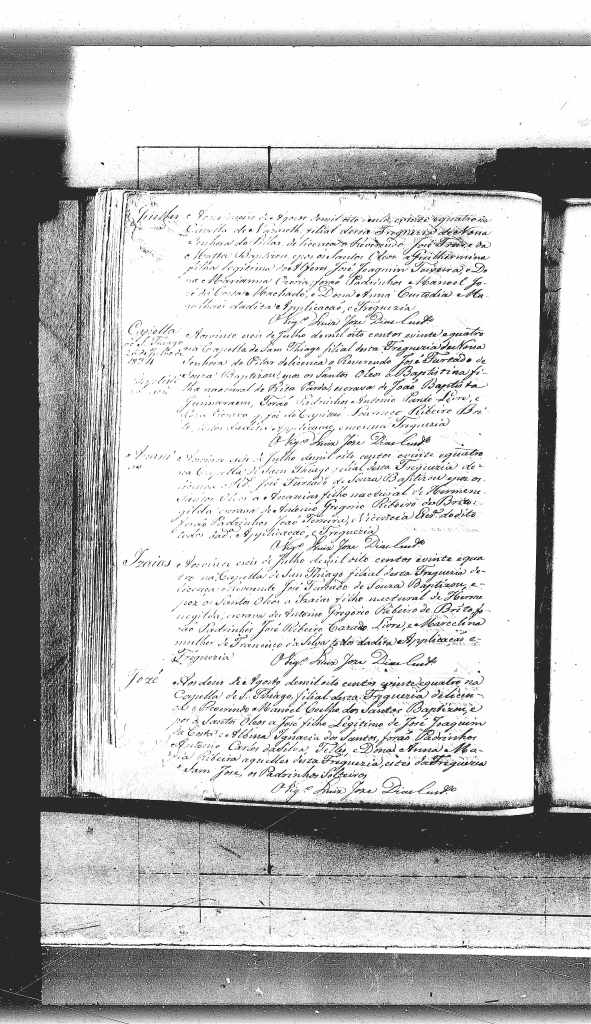 Guilher Aos de Agosto de mil oito centos e vinte e quatro na
Capella de Nazareth filial desta Freguezia de Nossa
Senhora do Pilar de licença o Reverendo José
e Matta Baptizou e pos os Santos Oleos a Guilhermina
filha legitima do Alferes José Joaquim Teixeira, e Do
na Marianna forão Padrinhos Manoel Jo
zé da Costa Machado, e Dona Anna Custodia Ma
da dita Applicação, e Freguezia
O Vigr.º Luiz Joze Dias Cust.º
Capella
de S. Thiago
Aos vinte e seis de Julho de mil oito centos e vinte e quatro
na Capella de Sam Thiago filial desta Freguezia de Nossa
1824
Senhora do Pilar de licença o Reverendo José Furtado de
Souza Baptizou, e pos os Santos Oleos a Baptistina fi
lha natural de Rita Parda, escrava de João Baptista
Guimaraens, Forão Padrinhos Antonio Pardo Livre, e
Rita Crioula do Capitão Lourenço Ribeiro Bri
to todos da dita Applicação, e mesma Freguezia
O Vigr.º Luiz Joze Dias Cust.º
Anani
as
Aos vinte e seis de Julho de mil oito centos e vinte e quatro
na Capella de Sam Thiago filial desta Freguezia de
licença o Rd.º José Furtado de Souza Baptizou e pos os
Santos Oleos a Ananias filho natural de Hermene
gilda, escrava de Antonio Gregorio Ribeiro de Brito
Forão Padrinhos João Ferreira, e Vicencia Esc.ª do dito
todos da d.ª Applicação, e Freguezia
O Vigr.º Luiz Joze Dias Cust.º
Izaias Aos vinte e seis de Julho de mil oito centos e vinte e qua
tro na Capella de Sam Thiago filial desta Freguezia de
licença o Reverendo José Furtado de Souza Baptizou, e
pos os Santos Oleos a Izaias filho natural de Herme
negilda, escrava de Antonio Gregorio Ribeiro de Brito fo
rão Padrinhos José Ribeiro Livre, e Marcelina
mulher de Francisco da Silva todos da dita Applicação e
Freguezia O Vigr.º Luiz Joze Dias Cust.º
Jozé Aos deus de Agosto de mil oito centos e vinte e quatro na
Capella de S. Thiago, filial desta Freguezia de licen
ca o Reverendo Manoel Coelho dos Santos Baptizou, e
pos os Santos Oleos a José filho Legitimo de José Joaquim
da Costa e Albina Ignacia dos Santos, forão Padrinhos
Antonio Carlos da Silva Telles, e Dona Anna Ma
ria Ribeiro aquelles desta Freguezia, e estes da Freguezia
de Sam José, os Padrinhos Solteiros
O Vigr.º Luiz Joze Dias Cust.º